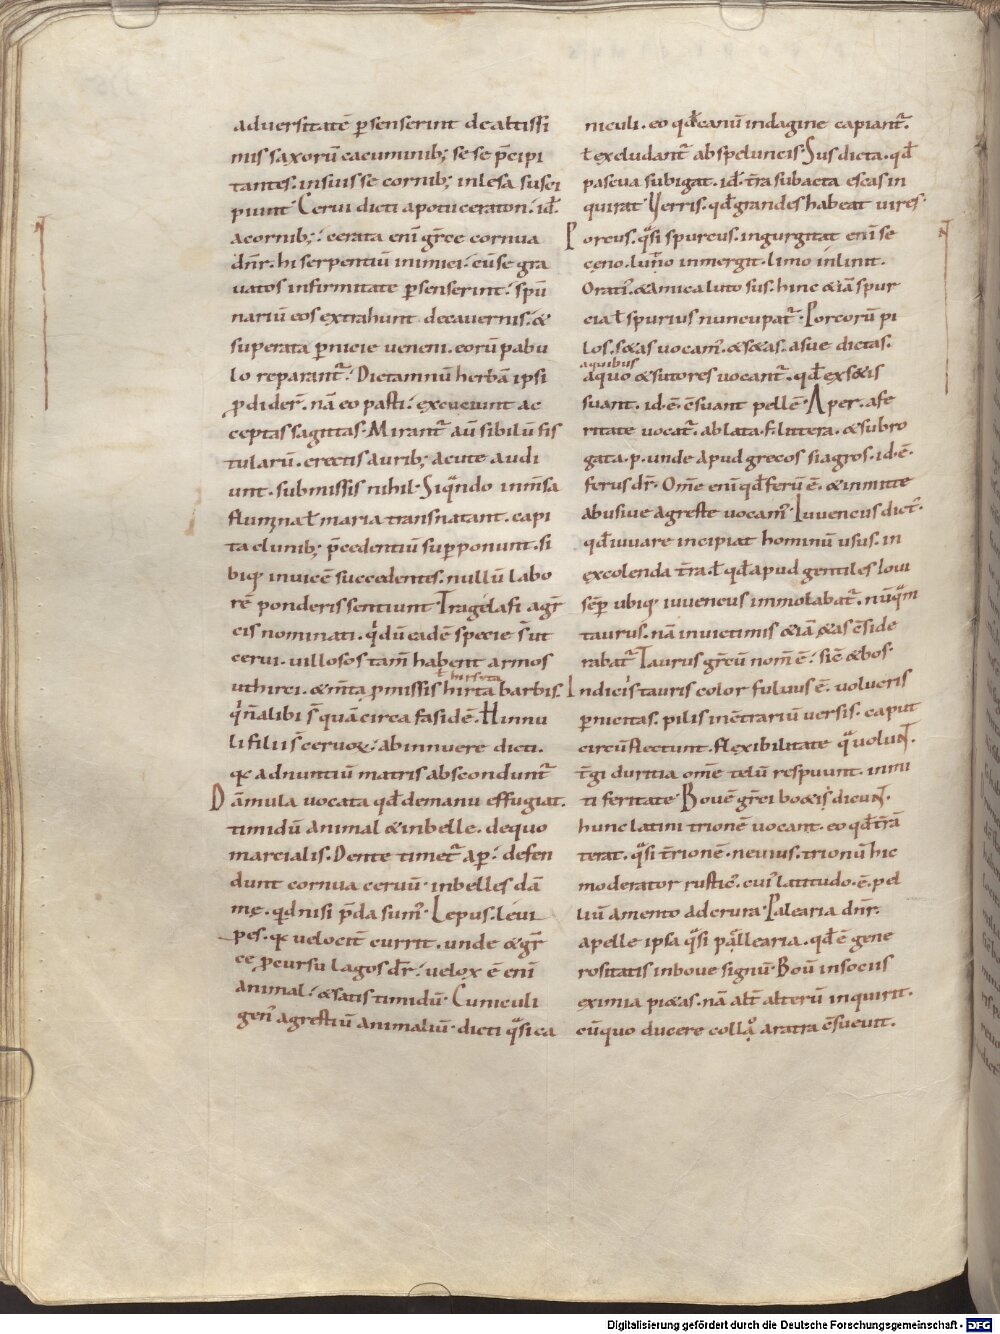 aduersitatē ꝑsenserint de altissi
mis saxorū cacuminib; se se p̄cipi
tantes. in suis se cornib; inlesa susci
piunt. Cerui dicti apotu ceraton. id.
a cornib;. cerata eni gr̄ce cornua
dn̄r. hi serpentiū inimici. cū se gra
uatos infirmitate ꝑsenserint. spū
nariū eos extrahunt de cauernis. &
superata ꝑnicie ueneni. eorū pabu
lo reparant᷑. Dictamnū herbā ipsi
ꝓdider̄. nā eo pasti. excutiunt ac
ceptas sagittas. Mirant᷑ aū sibilū fis
tularū. erectis aurib; acute audi
unt. submissis nihil. Si qͣndo inm̄sa
flumina ł maria transnatant. capi
ta clunib; p̄cedentiū suꝑponunt. si
biq; inuicē succedentes. nullū labo
rē ponderis sentiunt. Tragelafi a gr̄
cis nominati. qͥ dū eadē specie s̄ ut
cerui. uillosos tam̄ habent armos
ł hirsuta
ut hirci. & m̄ta ꝓmissis hirta barbis.
qͥ n̄ alibi s̄ quā circa fasidē. Hinnu
li filii s̄ ceruoꝝ. ab innuere dicti.
qꝛ ad nuntiū matris absconduntᷣ
Dāmula uocata qđ de manu effugiat.
timidū animal & inbelle. de quo
marcialis. Dente timet᷑ aꝑ. defen
dunt cornua ceruū. inbelles dā
me. qđ nisi p̄da sum᷒. Lepus. leui
pes. qꝛ uelocit̄ currit. unde & gr̄
ce ꝓ cursu lagos dr̄. uelox ē eni
animal. & satis timidū. Cuniculi
gen᷒ agrestiū animaliū. dicti qͣsi ca
niculi. eo qđ canū indagine capiant᷑.
ł excludant᷑ ab speluncis. Sus dicta. qđ
pascua subigat. id. t̄ra subacta escas in
quirat. Verris. qđ grandes habeat uires.
Porcus. qͣsi spurcus. ingurgitat eni se
ceno. lim̄o inmergit. limo inlinit.
Orati᷒. & amica luto sus. hinc & iā spur
cia ł spurius nuncupat᷑. Porcorū pi
los. s&as uocam᷒. & s&as. a sue dictas.
a quibus
a quo & sutores uocant᷑. qđ ex s&is
suant. id. ē. c̄suant pellē. Aper. a fe
ritate uocat᷑. ablata. f. littera. & subro
gata. p. unde apud grecos siagros. id. ē.
ferus dr̄. Om̄e eni qđ ferū ē. & inmitte
abusiue agreste uocam᷒. Iuuencus dict᷒.
qđ iuuare incipiat hominū usus. in
excolenda t̄ra. ł qđ apud gentiles ioui
sēꝑ ubiq; iuuencus immolabat᷑. nūqͣm
taurus. nā in uictimis & iā &as c̄side
rabat᷑. Taurus gr̄cū nom̄ ē. sic̄ & bos.
Indicis tauris color fuluus ē. uolucris
ꝑnicitas. pilis in c̄trariū uersis. caput
circūflectunt. flexibilitate qͣ uolunt.
t̄gi duritia om̄e telū respuunt. inmi
ti feritate. Bouē gr̄ci bo&is dicunt.
hunc latini trionē uocant. eo qđ t̄rā
terat. qͣsi t̄rionē. neuius. trionū hic
moderator rustic᷒. cui᷒ latitudo. ē. pel
liū a mento ad crura. Palearia dn̄r.
a pelle ipsa qͣsi pallearia. qđ ē gene
rositatis in boue signū. Boū in sociis
eximia pi&as. nā alt̄ alterū inquirit.
cū quo ducere collo aratra c̄sueuit.
Digitalisierung gefördert durch die Deutsche Forschungsgemeinschaft - DFG